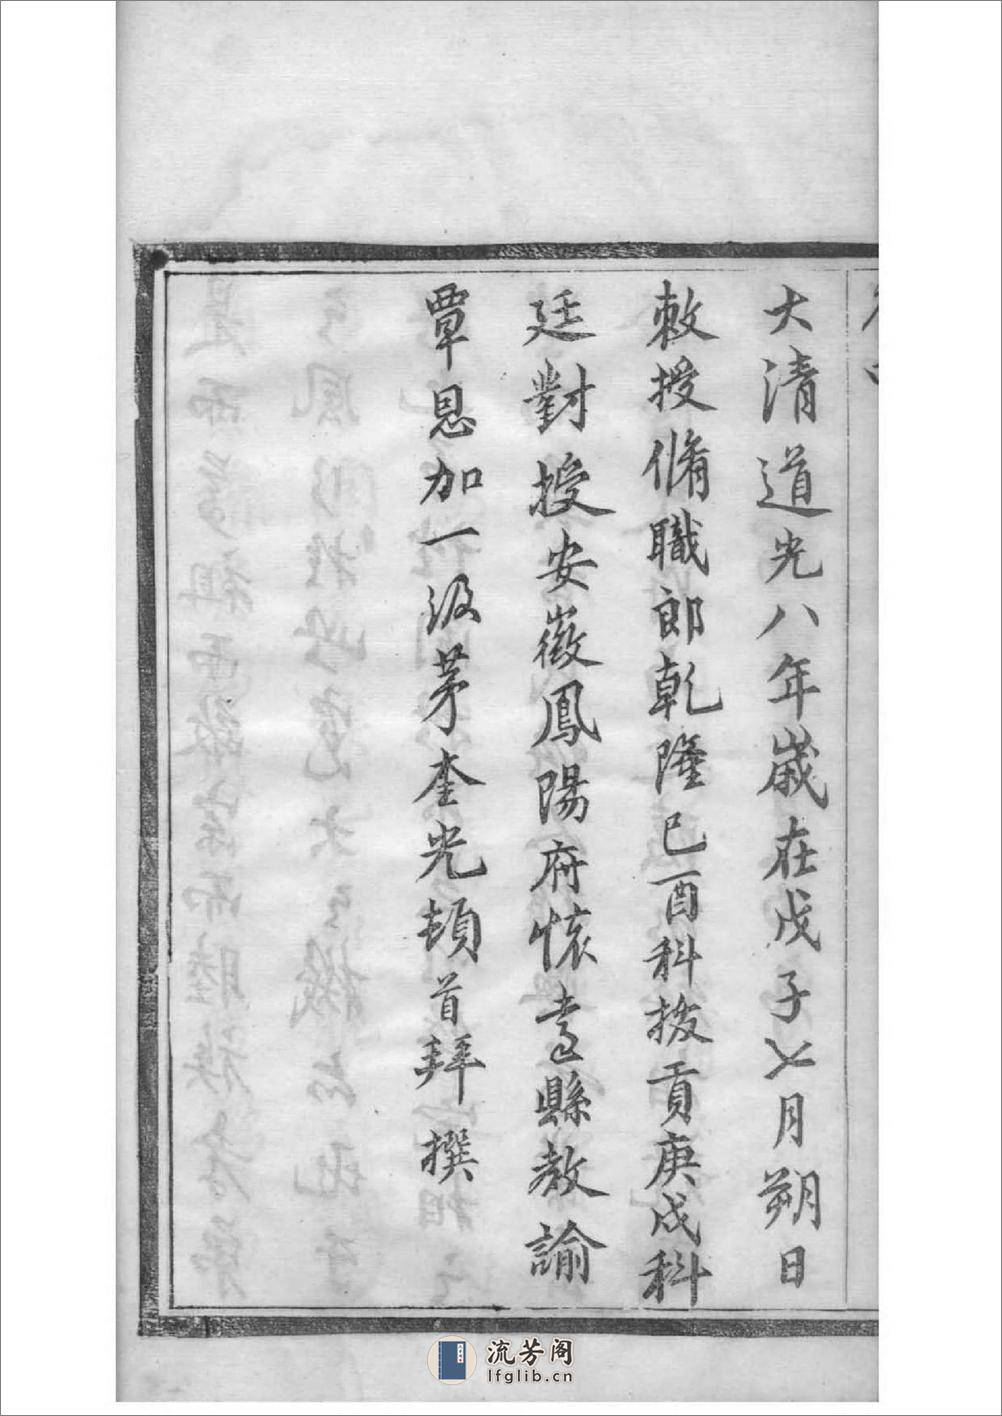 大清道光八年歲在戊子七月朔日
敕授脩職郎乾隆己酉科拔貢庚戌科
廷對授安徽鳳陽府懷遠縣教諭
覃恩加一級茅奎光頓首拜撰
流芳阁
lfglib.cn